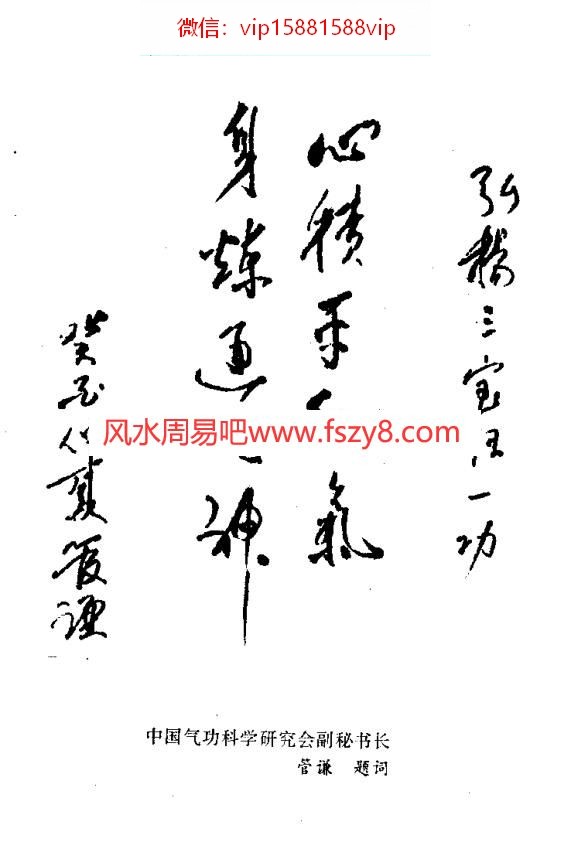 微信：vip15881588vip
弘揚三宝归一功
心積平氣
身煉通神
癸酉仲夏管谦
风水周易吧www.fszy8.com
中国气功科学研究会副秘书长
管谦 题词